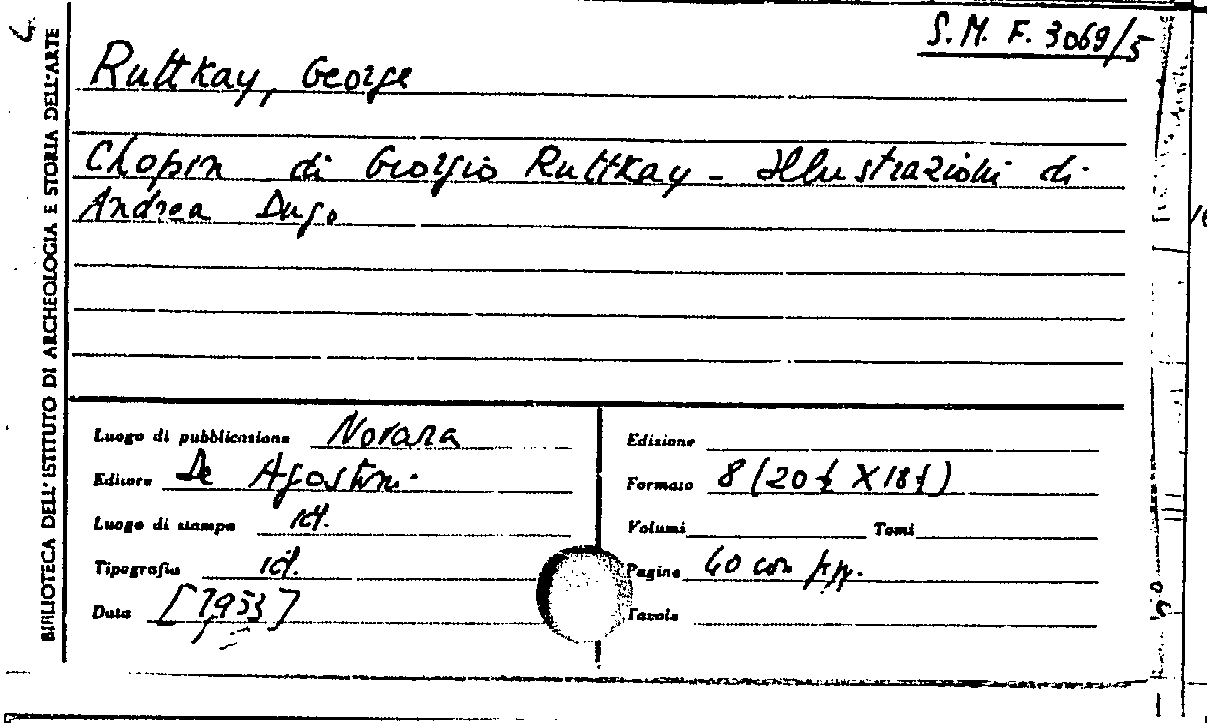 S.M. F. 3069/5
Ruttkay, George
Chopin di Giorgio Ruttkay - Illustrazioni di
Andrea Dugo
BIBLIOTECA DELL'ISTITUTO DI ARCHEOLOGIA E STORIA DELL'ARTE
Luogo di pubblicazione Novara
Editore De Agostini
Luogo di stampa id.
Tipografia id.
Data [1953]
Edizione
Formato 8 (20½ X 18½)
Volumi Tomi
Pagine 40 con
Tavole